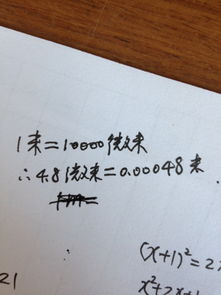 1米=10000微米
∴4.8微米=0.00048米
(x+1)²=2
x²+2x+1
21